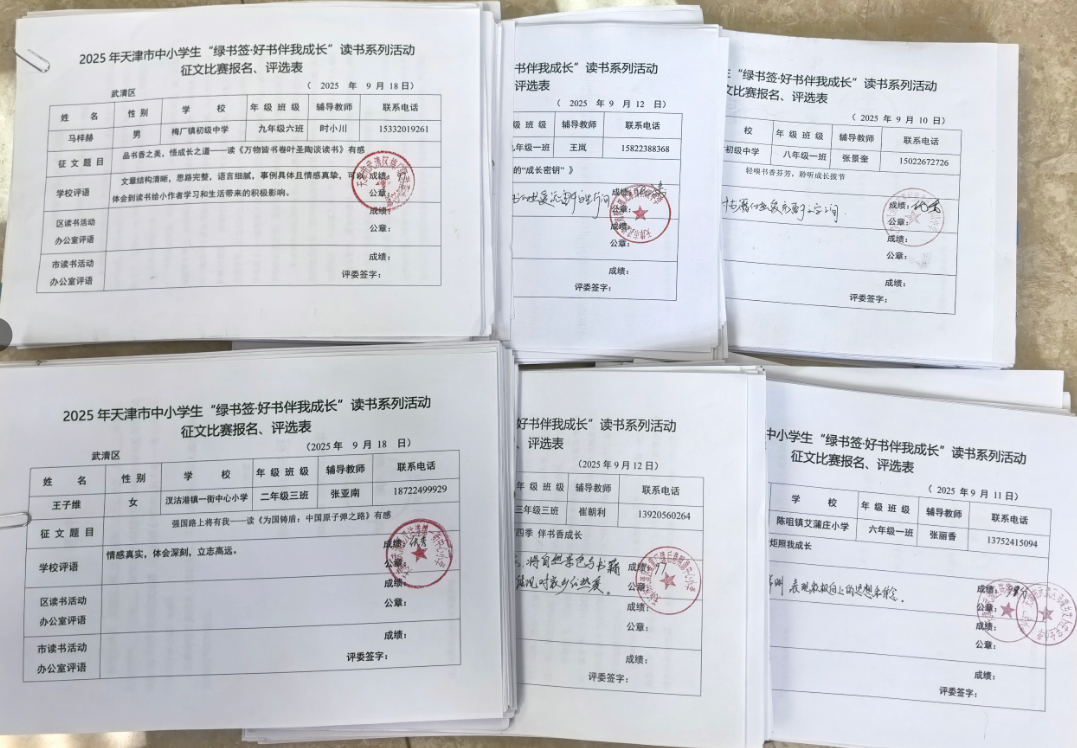 2025 年天津市中小学生“绿书签·好书伴我成长”读书系列活动
征文比赛报名、评选表
武清区 （ 2025 年 9 月 18 日）
姓 名 性 别 学 校 年 级 班 级 辅导教师 联系电话
马梓赫 男 梅厂镇初级中学 九年级六班 时小川 15332019261
征 文 题 目 品书香之美，悟成长之道——读《万物皆书卷叶圣陶谈读书》有感
学校评语 文章结构清晰，思路完整，语言细腻，事例具体且情感真挚，可以
体会到读书给小作者学习和生活带来的积极影响。
成绩：
公章：
区读书活动
办公室评语
成绩：
公章：
市读书活动
办公室评语
成绩：
评委签字：
书伴我成长”读书系列活动
评选表
（ 2025 年 9 月 12 日）
级 班 级 辅导教师 联系电话
年级一班 王岚 15822388368
的“成长密钥”》
成绩：
公章：
成绩：
公章：
成绩：
评委签字：
“绿书签·好书伴我成长”读书系列活动
文比赛报名、评选表
（ 2025 年 9 月 10 日）
校 年 级 班 级 辅导教师 联系电话
初级中学 八年级一班 张景奎 15022672726
轻嗅书香芬芳，聆听成长拔节
成绩：优秀
公章：
成绩：
公章：
成绩：
评委签字：
2025 年天津市中小学生“绿书签·好书伴我成长”读书系列活动
征文比赛报名、评选表
武清区 （2025 年 9 月 18 日）
姓 名 性 别 学 校 年 级 班 级 辅导教师 联系电话
王子维 女 汊沽港镇一街中心小学 二年级三班 张亚南 18722499929
征 文 题 目 强国路上将有我——读《为国铸盾：中国原子弹之路》有感
学校评语 情感真实，体会深刻，立志高远。
成绩：优秀
公章：
区读书活动
办公室评语
成绩：
公章：
市读书活动
办公室评语
成绩：
评委签字：
好书伴我成长”读书系列活动
、评选表
（2025 年 9 月 12 日）
年 级 班 级 辅导教师 联系电话
三年级三班 崔朝利 13920560264
四季 伴书香成长
将自然景色与书籍
对家乡的热爱。
成绩：97
公章：
成绩：
公章：
成绩：
评委签字：
中小学生“绿书签·好书伴我成长”读书系列活动
征文比赛报名、评选表
（ 2025 年 9 月 11 日）
学 校 年 级 班 级 辅导教师 联系电话
陈咀镇艾蒲庄小学 六年级一班 张丽香 13752415094
炬照我成长
成绩：98分
公章：
成绩：
公章：
成绩：
评委签字：